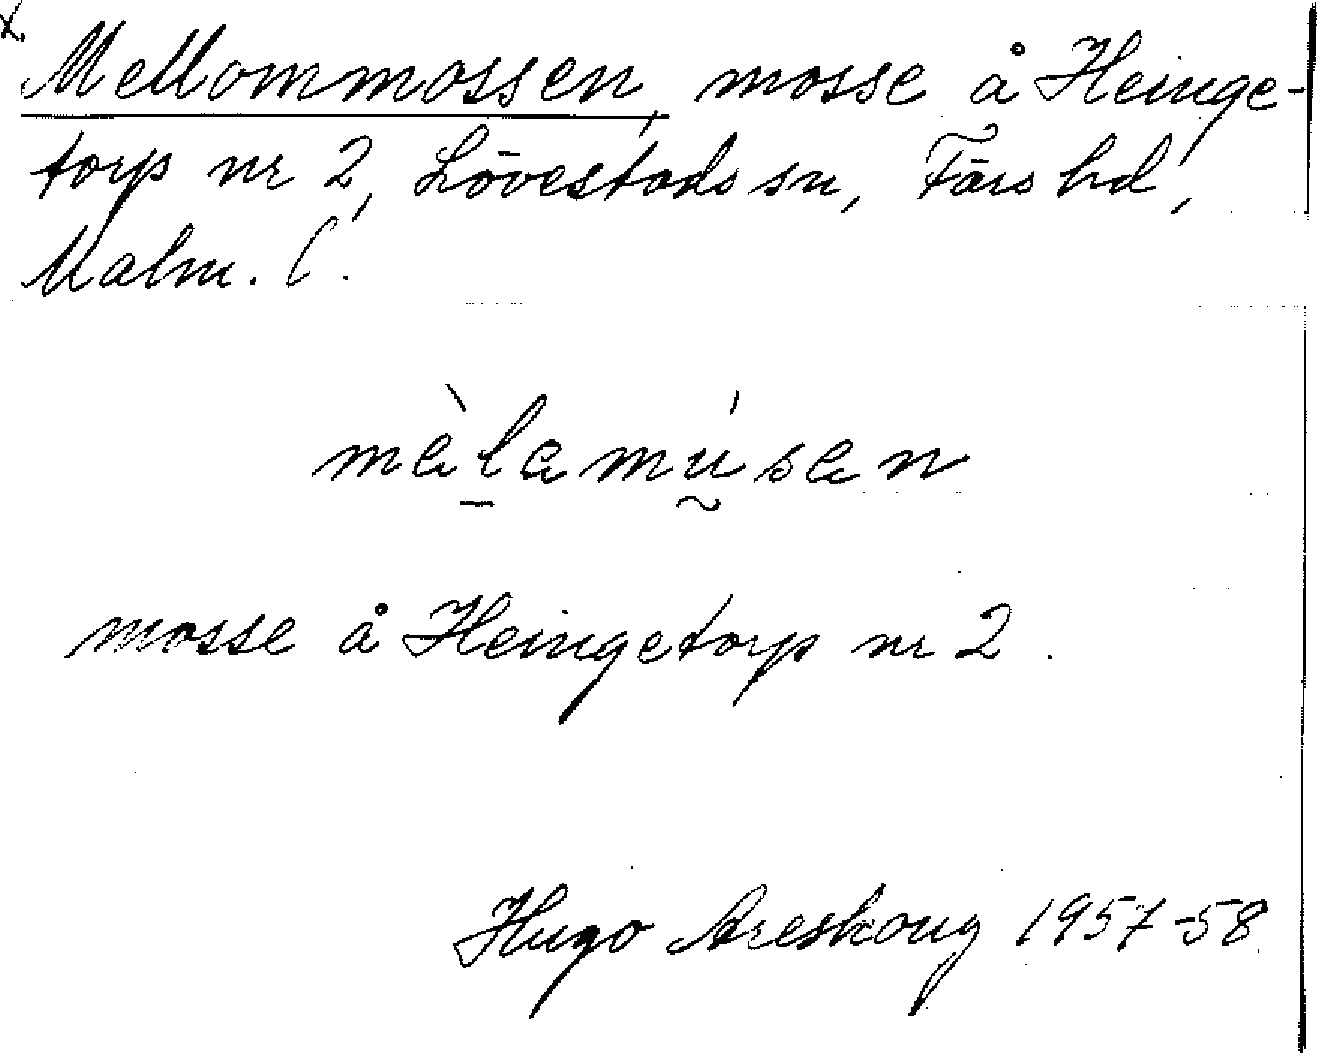 x.
Mellommossen, mosse å Heinge-
torp nr 2, Lövestads sn, Färs hd,
Malm. l.
mèlamúsan
mosse å Heingetorp nr 2.
Hugo Areskoug 1957-58